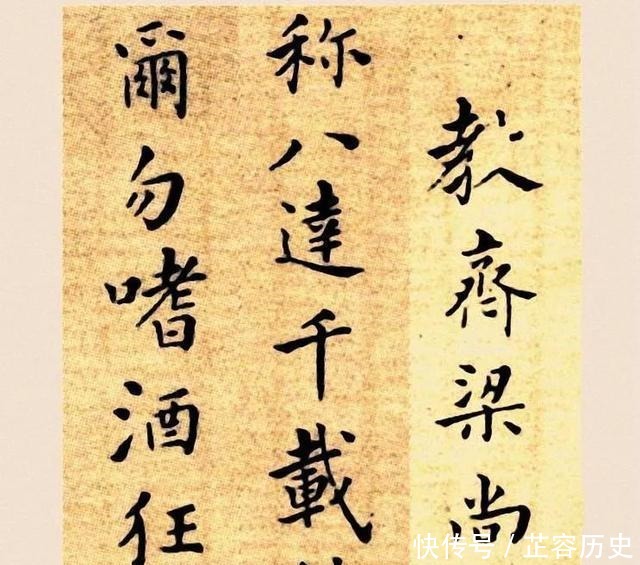 教齊梁尚
称八達千載
爾勿嗜酒狂
快传号/芷容历史